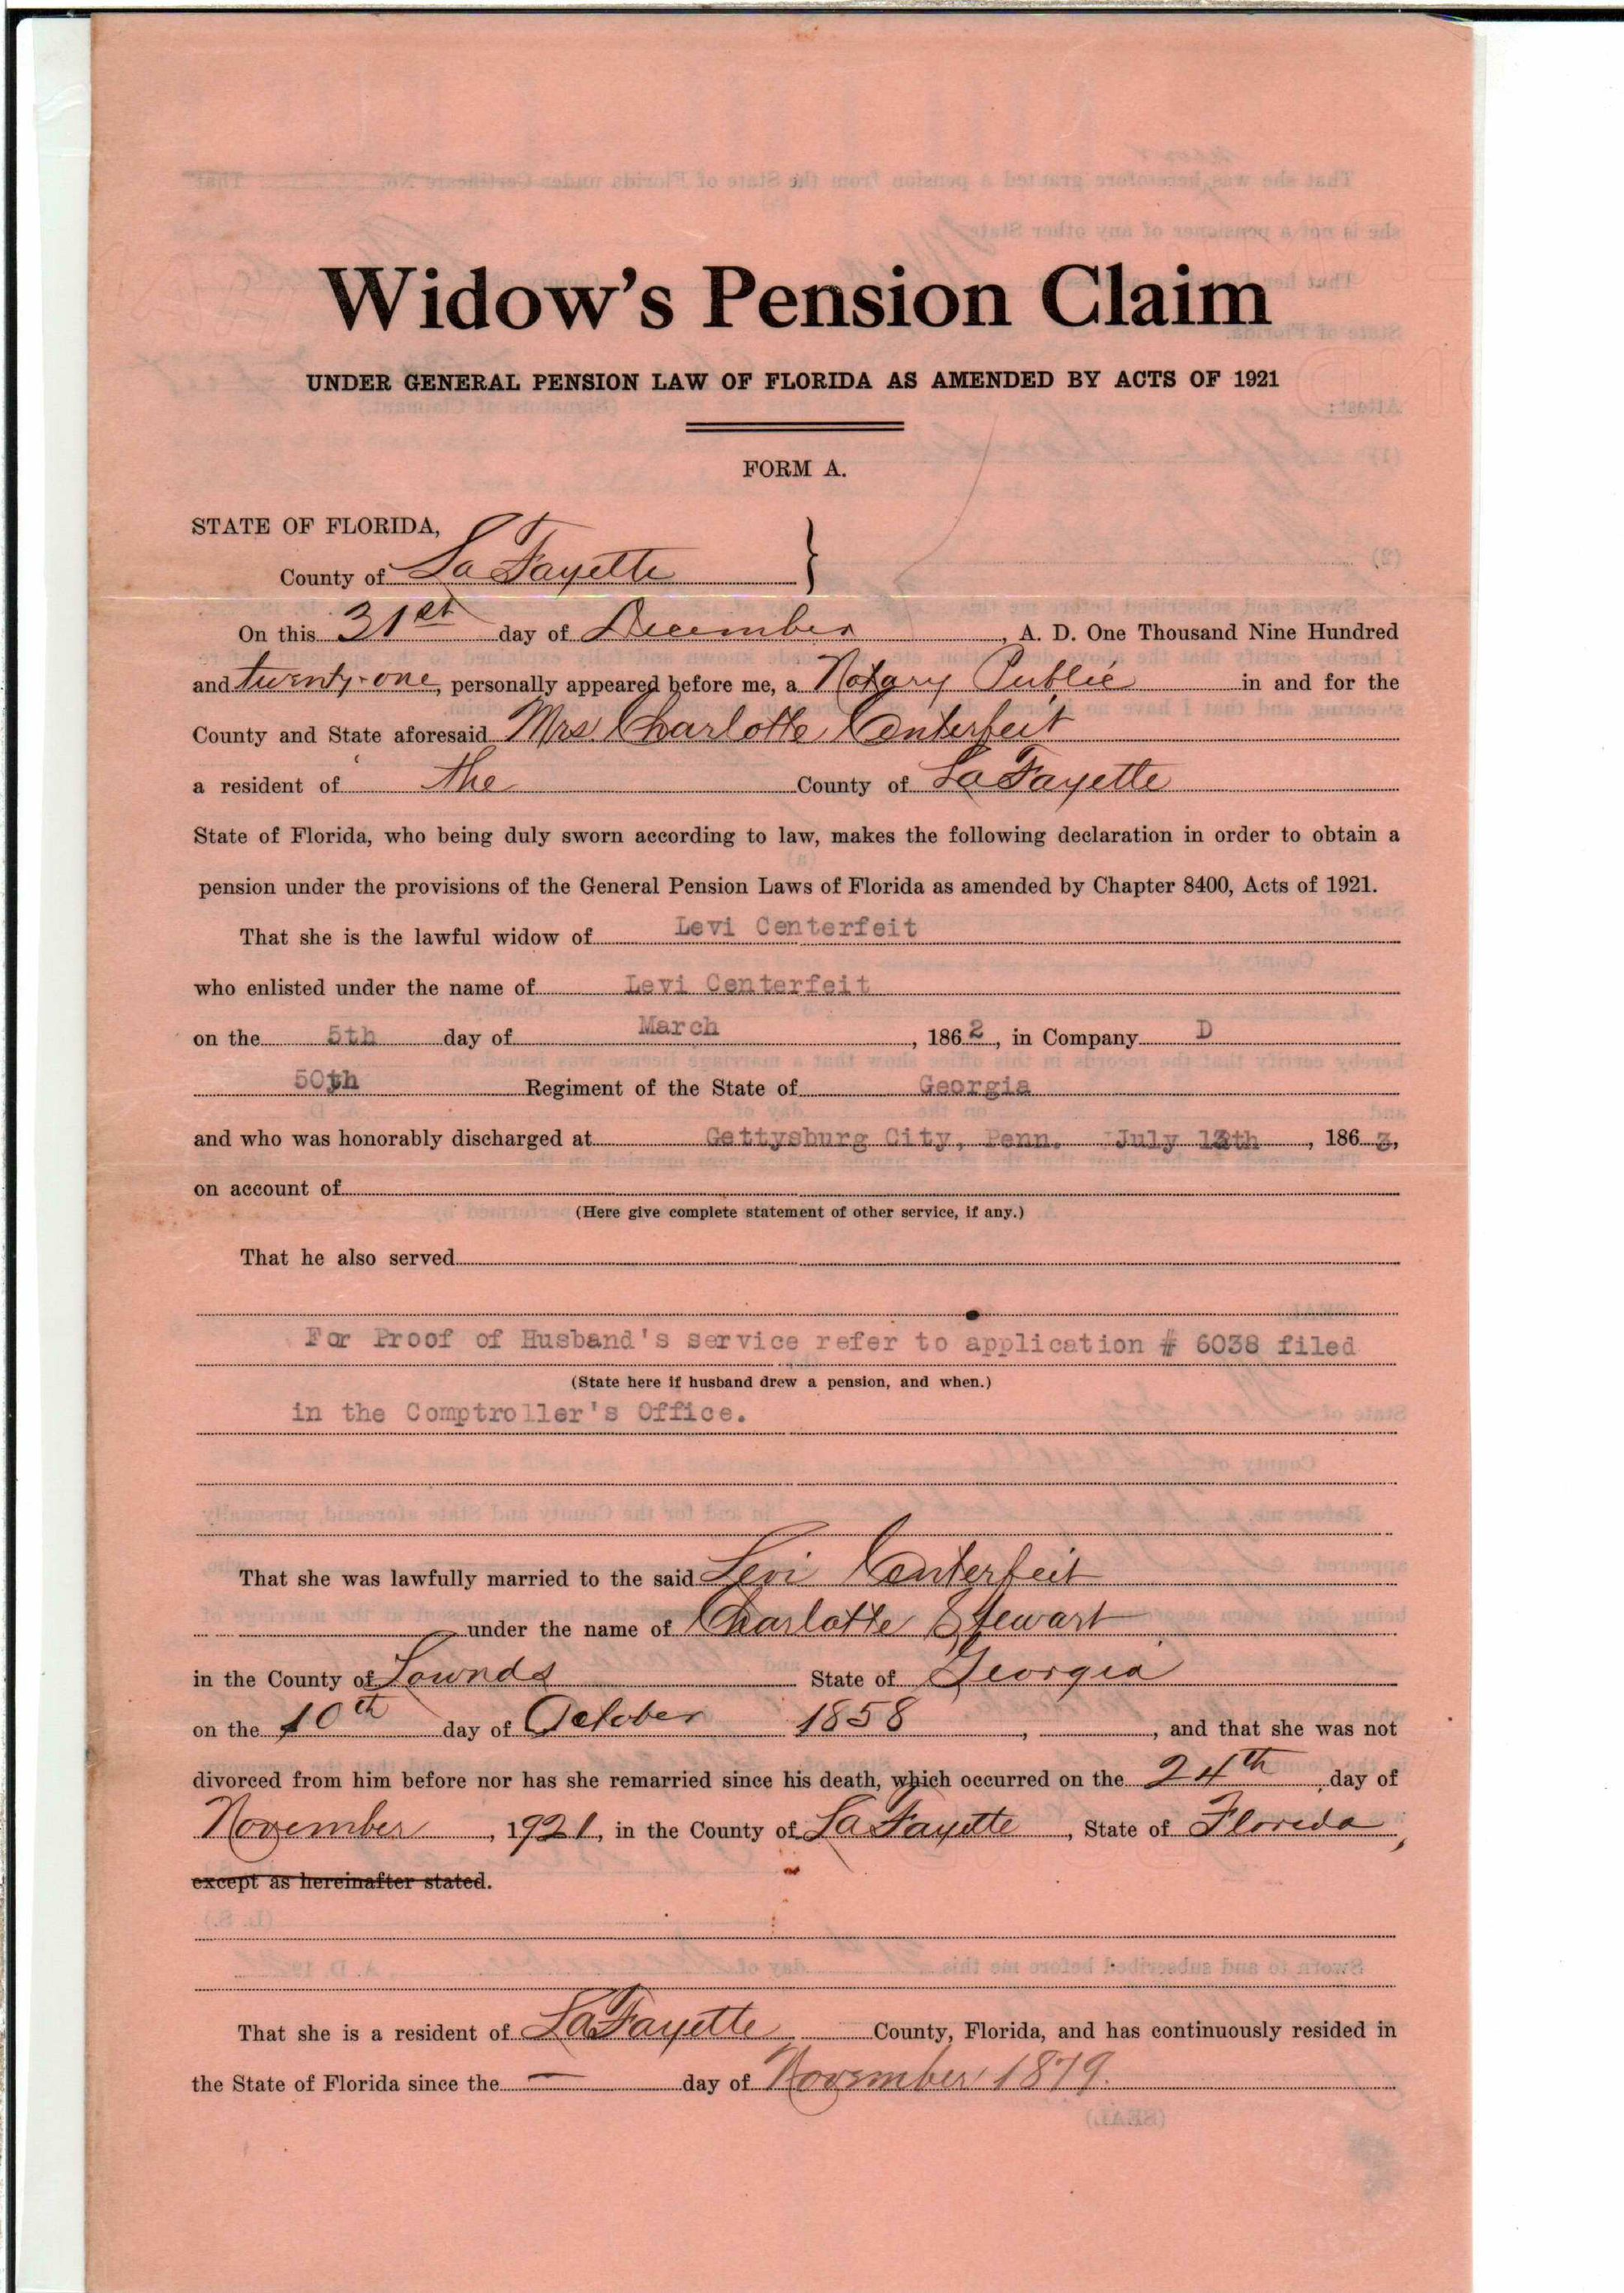 Widow's Pension Claim
UNDER GENERAL PENSION LAW OF FLORIDA AS AMENDED BY ACTS OF 1921
FORM A.
STATE OF FLORIDA,
County of La Fayette }
On this 31st day of December, A. D. One Thousand Nine Hundred
and twenty-one, personally appeared before me, a Notary Public in and for the
County and State aforesaid Mrs Charlotte Centerfeit
a resident of the County of La Fayette
State of Florida, who being duly sworn according to law, makes the following declaration in order to obtain a
pension under the provisions of the General Pension Laws of Florida as amended by Chapter 8400, Acts of 1921.
That she is the lawful widow of Levi Centerfeit
who enlisted under the name of Levi Centerfeit
on the 5th day of March, 1862, in Company D
50th Regiment of the State of Georgia
and who was honorably discharged at Gettysburg City, Penn. July, 1863,
on account of
(Here give complete statement of other service, if any.)
That he also served
For Proof of Husband's service refer to application # 6038 filed
(State here if husband drew a pension, and when.)
in the Comptroller's Office.
That she was lawfully married to the said Levi Centerfeit
under the name of Charlotte Stewart
in the County of Lownds State of Georgia
on the 10th day of October 1858, , and that she was not
divorced from him before nor has she remarried since his death, which occurred on the 24th day of
November, 1921, in the County of La Fayette, State of Florida,
except as hereinafter stated.
That she is a resident of LaFayette County, Florida, and has continuously resided in
the State of Florida since the — day of November 1879.